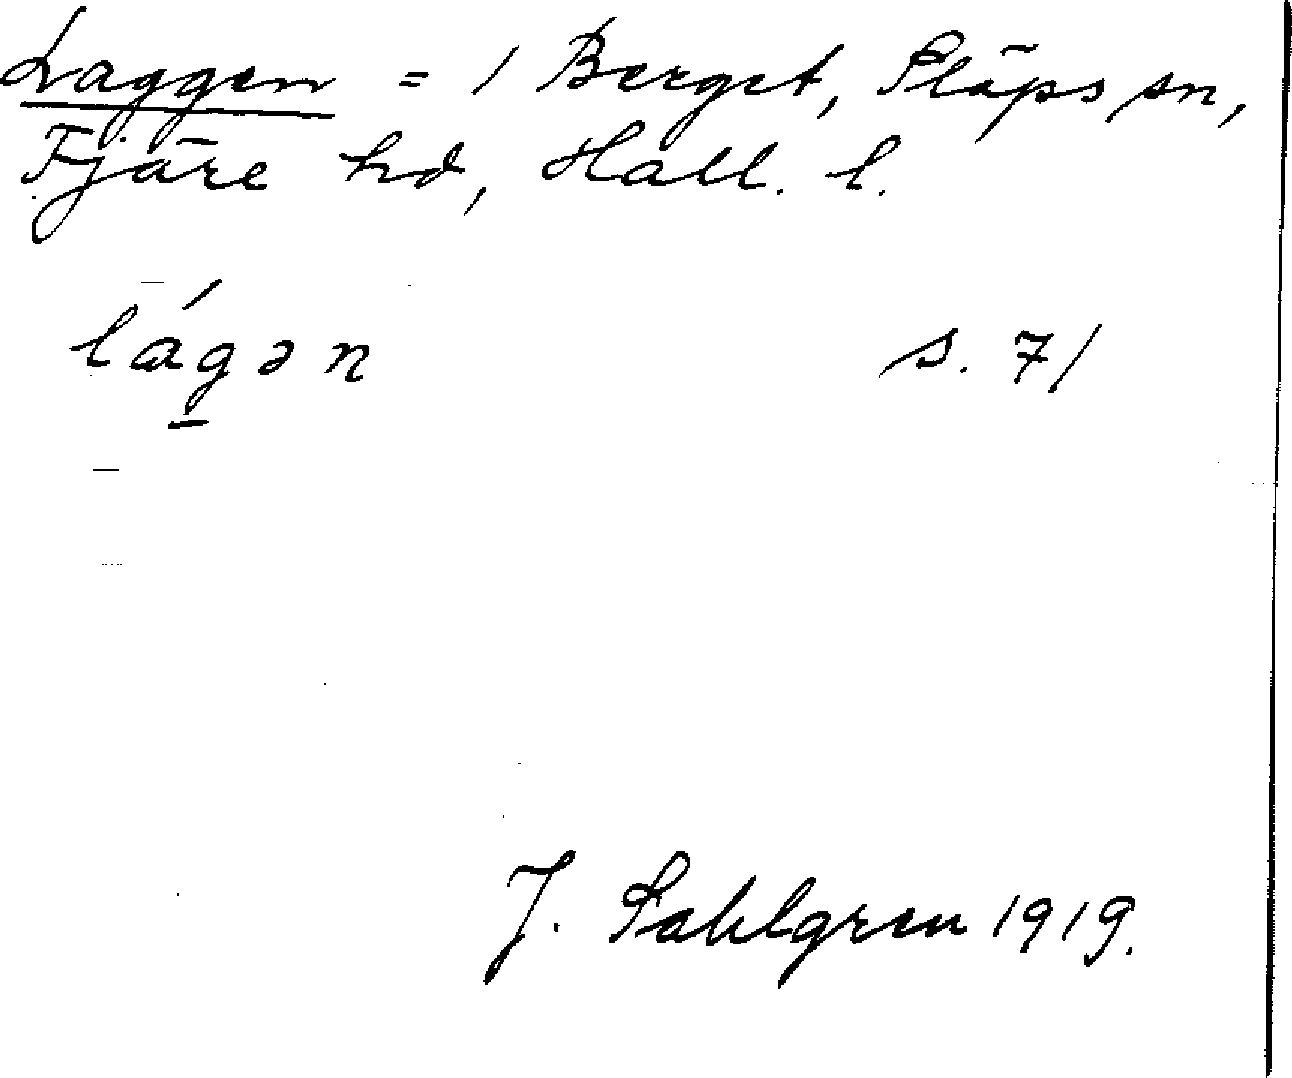 Laggen = 1 Berget, Släps sn,
Fjäre hd, Hall. l.
lágən s. 71
J. Sahlgren 1919.